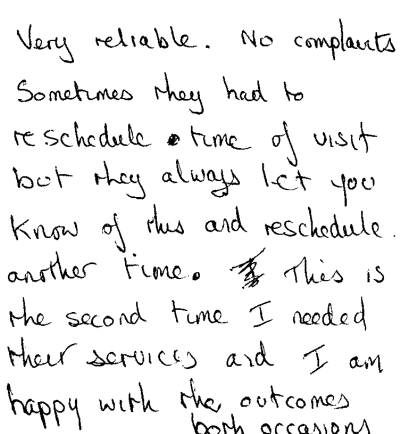 Very reliable. No complaints
Sometimes they had to
reschedule time of visit
but they always let you
know of this and reschedule.
another time. This is
the second time I needed
their services and I am
happy with the outcomes
both occasions